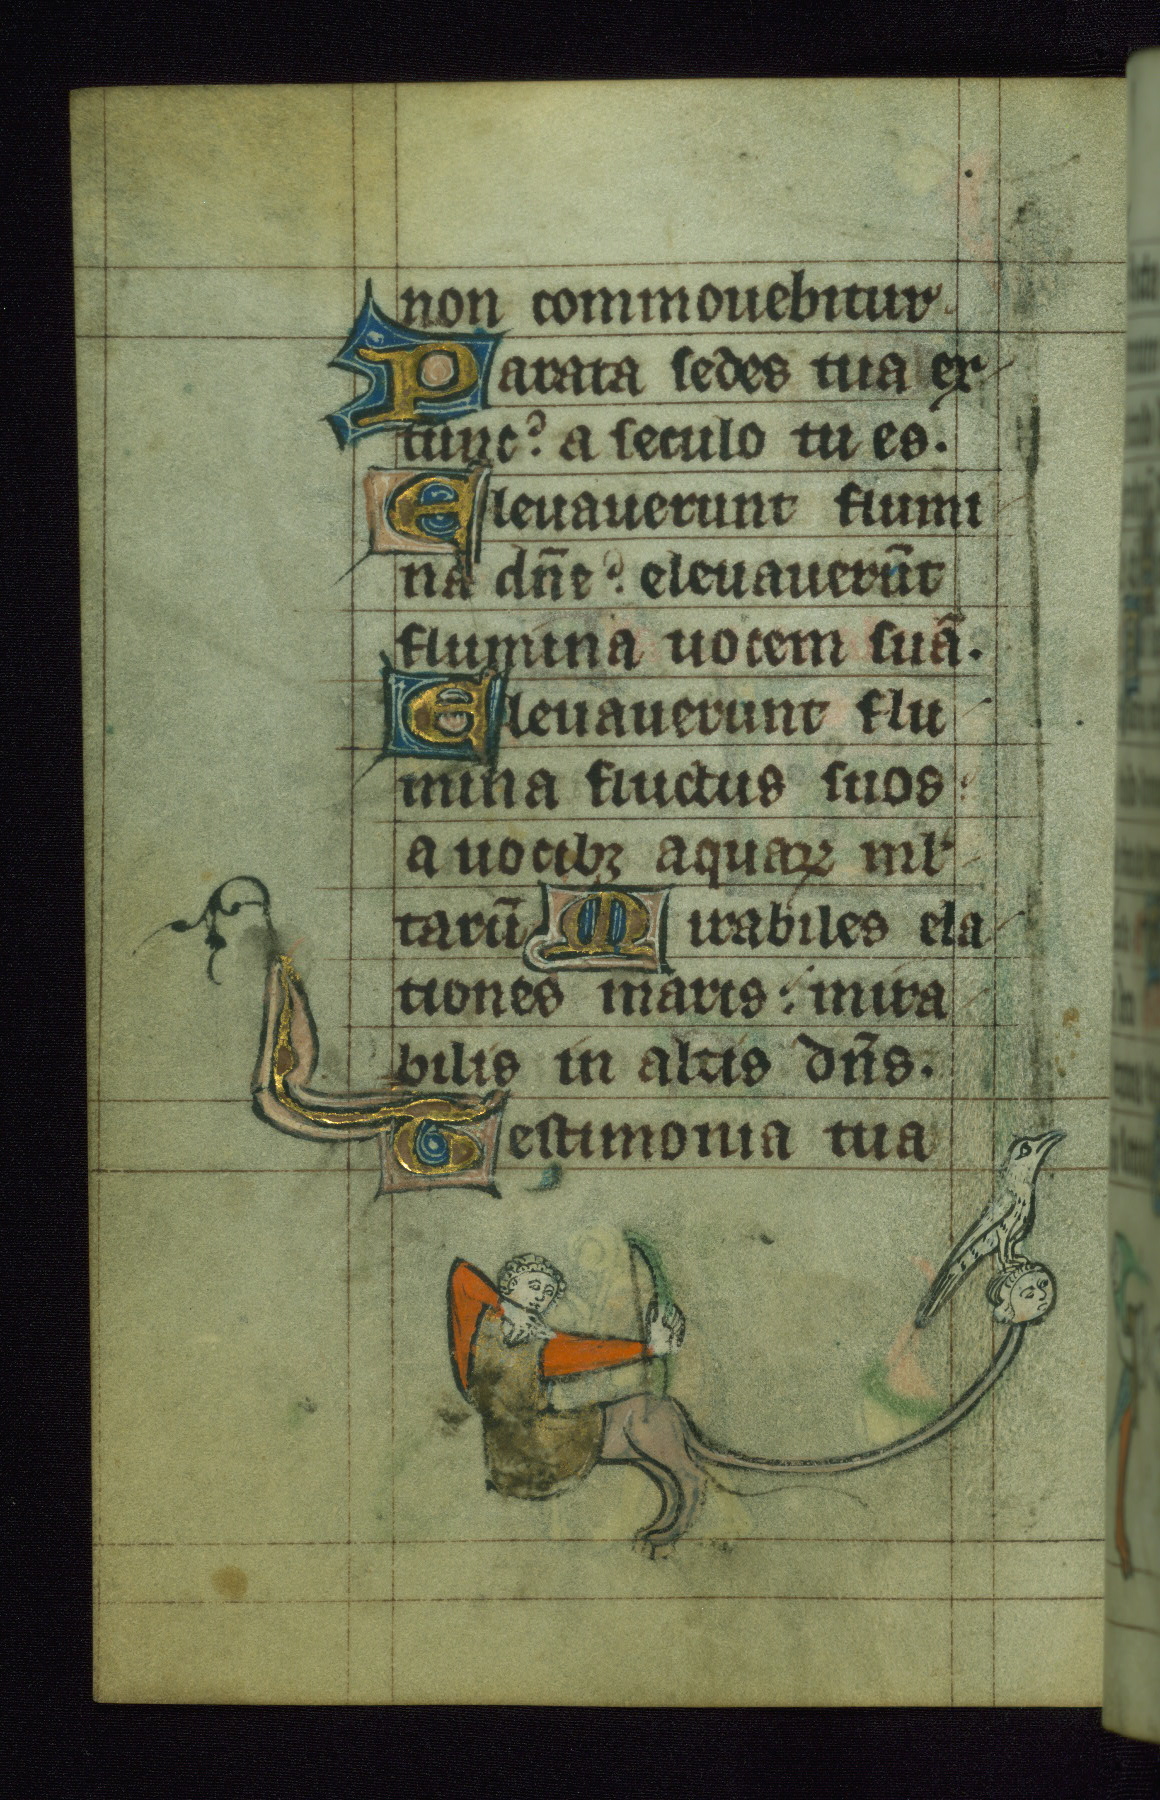 non commouebitur
Parata sedes tua ex
tunc? a seculo tu es.
Eleuauerunt flumi
na dn̄e? eleuauerūt
flumina uocem suā.
Eleuauerunt flu
mina fluctus suos
a uocibꝫ aquaꝝ ml̉
tarū Mirabiles ela
tiones maris : mira
bilis in altis dn̄s.
Testimonia tua